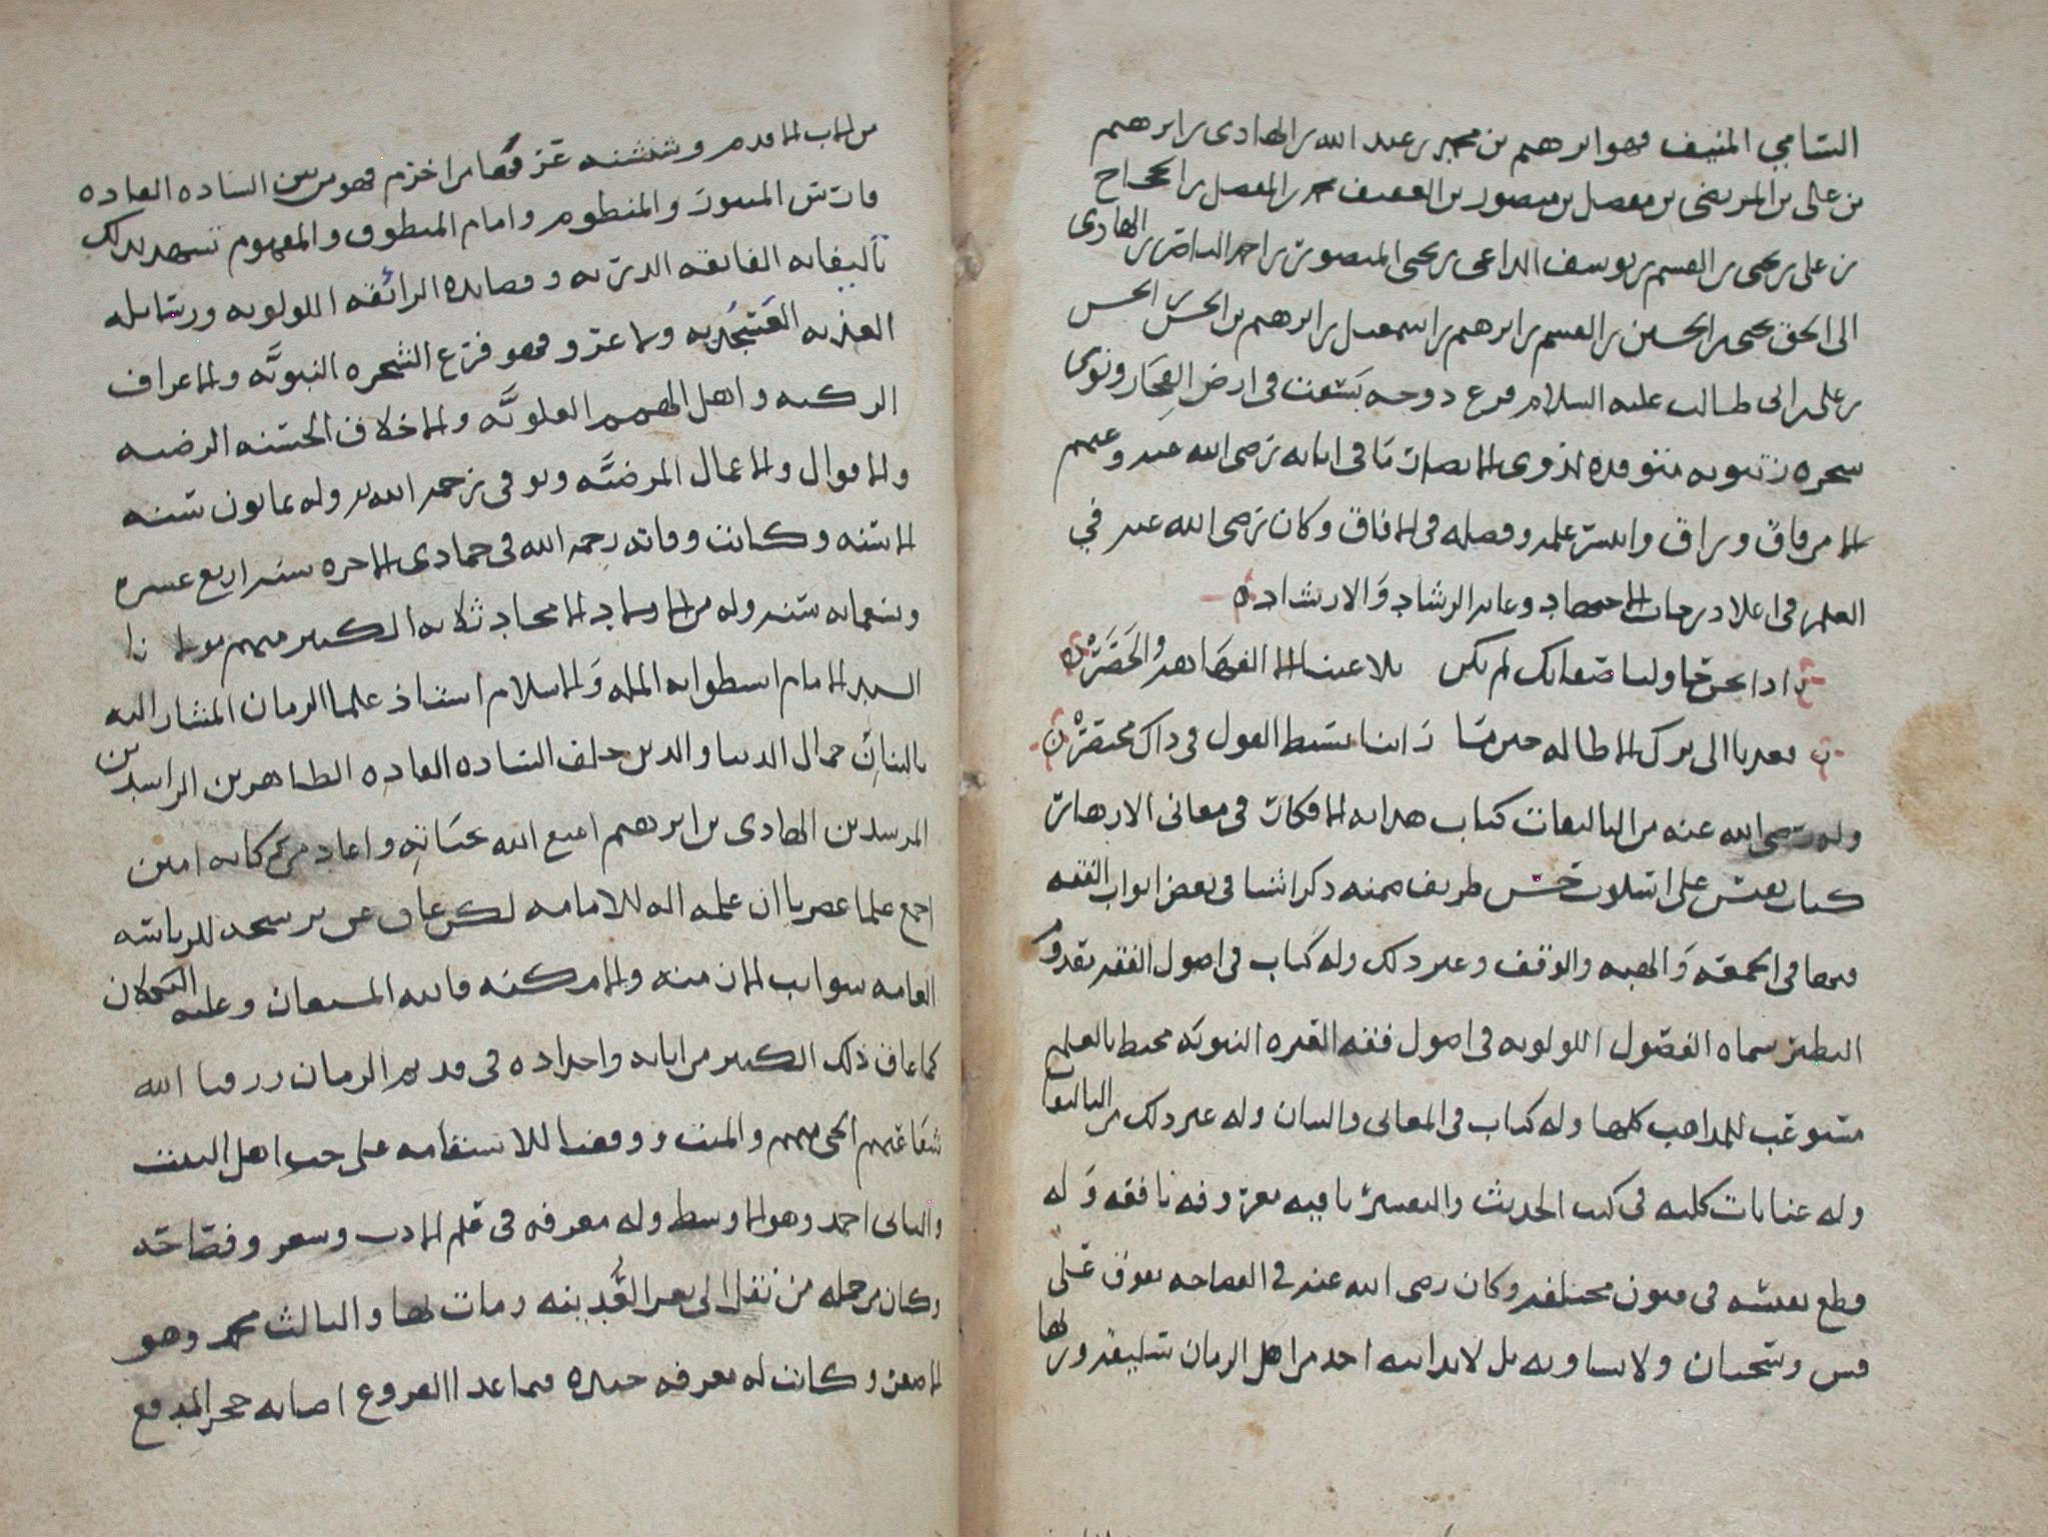 السامي المنيف فهو ابرهيم بن محمد بن عبد الله بن الهادى بن ابرهيم
بن على بن المرتضى بن مفضل بن منصور بن العفيف محمد بن المفضل بن الحجاج
بن على بن يحيى بن القسم بن يوسف الداعى بن يحيى المنصور بن احمد الناصر بن الهادى
الى الحق يحيى بن الحسين بن القسم بن ابرهيم بن اسمعيل بن ابرهيم بن الحسن بن الحسن
بن على بن ابى طالب عليه السلام فرع دوحه بسقت فى ارض الفخار ونوى
شجره زيتونه متوقده لذوى الابصار نافى ابايه رضى الله عنه وعنهم
الامر وفاق وراق وانتشر علمه وفضله فى الافاق وكان رضى الله عنه في
العلم فى اعلا درجات الاجتهاد وعابد الرشاد والارشاد
اذا نحن حاولنا صفاتك لم نكن بلاغتنا الا الفهاهه والحصر
فعدنا الى ترك الاطاله حين ما راينا بسيط القول فى ذاك مختصر
وله رضى الله عنه من التاليفات كتاب هدايه الافكار فى معانى الازهار
كتاب نفيس على اسلوب حسن طريف ضمنه ذكر اشيا فى بعض ابواب الفقه
فيها فى الجمعه والهبه والوقف وغير ذلك وله كتاب فى اصول الفقه مفقود
النظير سماه الفصول اللولويه فى اصول فقه العتره النبويه محيط بالعلم
مستوعب للمذاهب كلها وله كتاب فى المعانى والبيان وله غير ذلك من التاليفات
وله عنايات كليه فى كتب الحديث والتفسير باقيه معروفه نافقه وله
قطع نفيسه فى فنون مختلفه وكان رضى الله عنه في الفصاحه يفوق على
قس وسحبان ولا يساويه بل لا يدانيه احد من اهل الزمان سليقه ورثها
من الاب الاقدم وشنشنه عرفها من اخزم فهو من بين الساده القاده
فارس المنثور والمنظوم وامام المنطوق والمفهوم تشهد بذلك
تاليفاته الفايقه الدريه وقصايده الرائقه اللولويه ورسايله
العذبه العسجديه ولا غرو فهو فرع الشجره النبويه والاعراق
الزكيه واهل الهمم العلويه والاخلاق الحسنه الرضيه
والاقوال والاعمال المرضيه وتوفى رحمه الله وله ثمانون سنه
الا سنه وكانت وفاته رحمه الله فى جمادى الاخره سنه اربع عشره
وتسعمايه سنه وله من الاولاد الامجاد ثلاثه الكبير منهم مولانا
السيد الامام اسطوانه المله والاسلام استاذ علما الزمان المشار اليه
بالبنان جمال الدنيا والدين خلف الساده القاده الطاهرين الراشدين
المرشدين الهادى بن ابرهيم امتع الله بحياته واعاد من بركاته امين
اجمع علما عصرنا ان علمه اله للامامه لكن عاق عن ترشحه للرياسه
العامه شوايب الازمنه والامكنه فالله المستعان وعليه التكلان
كما عاق ذلك الكثير من ابايه واجداده فى قديم الزمان رزقنا الله
شفاعتهم الحى منهم والميت ووفقنا للاستقامه على حب اهل البيت
والثانى احمد وهو الاوسط وله معرفه فى علم الادب وشعر وفصاحه
وكان من جمله من نقل الى تعز العدينه ومات بها والثالث محمد وهو
الاصغر وكانت له معرفه جيده فيما عدا الفروع اصابه حجر المدفع